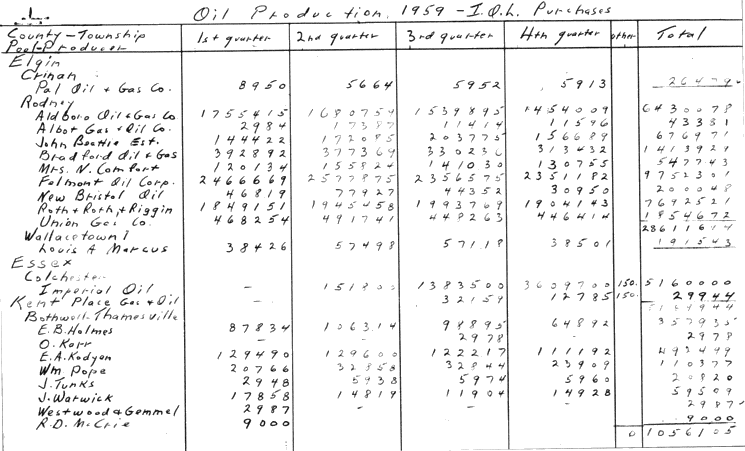 Oil Production, 1959 - I.O.L. Purchases
County - Township 1st quarter 2nd quarter 3rd quarter 4th quarter other Total
Pool - Producer
Elgin
Crinan
Pal Oil & Gas Co. 8950 5664 5952 5913 26479
Rodney
Aldboro Oil & Gas Co 1755415 1680754 1539895 1454009 6430078
Albot Gas & Oil Co. 2984 17387 11414 11596 43381
John Beattie Est. 144422 172085 203775 156689 676971
Bradford Oil & Gas 392892 377369 330236 313432 1413929
Mrs. N. Comfort 120134 155824 141030 130755 547743
Felmont Oil Corp. 2466669 2577875 2356575 2351182 9752301
New Bristol Oil 46819 77927 44352 30950 200048
Roth & Roth, & Riggin 1849151 1945458 1993769 1904143 7692521
Union Gas Co. 468254 491741 448263 446414 1854672
28611644
Wallacetown
Louis A Marcus 38426 57498 57118 38501 191543
Essex
Colchester
Imperial Oil - 151800 1383500 3609700 150. 5160000
Kent Place Gas & Oil - 32159 12785 150. 29944
5189944
Bothwell-Thamesville
E.B. Holmes 87834 106314 98895 64892 357935
O. Karr - 2978 2978
E.A. Kodyan 129490 129600 122217 111192 493499
Wm. Pope 20766 32858 32844 23909 110377
J. Tunks 2948 5938 5974 5960 20820
J. Warwick 17858 14819 11904 14928 59509
Westwood & Gemmel 2987 - - - 2987
R.D. McCrie 9000 - 9000
0 1056105